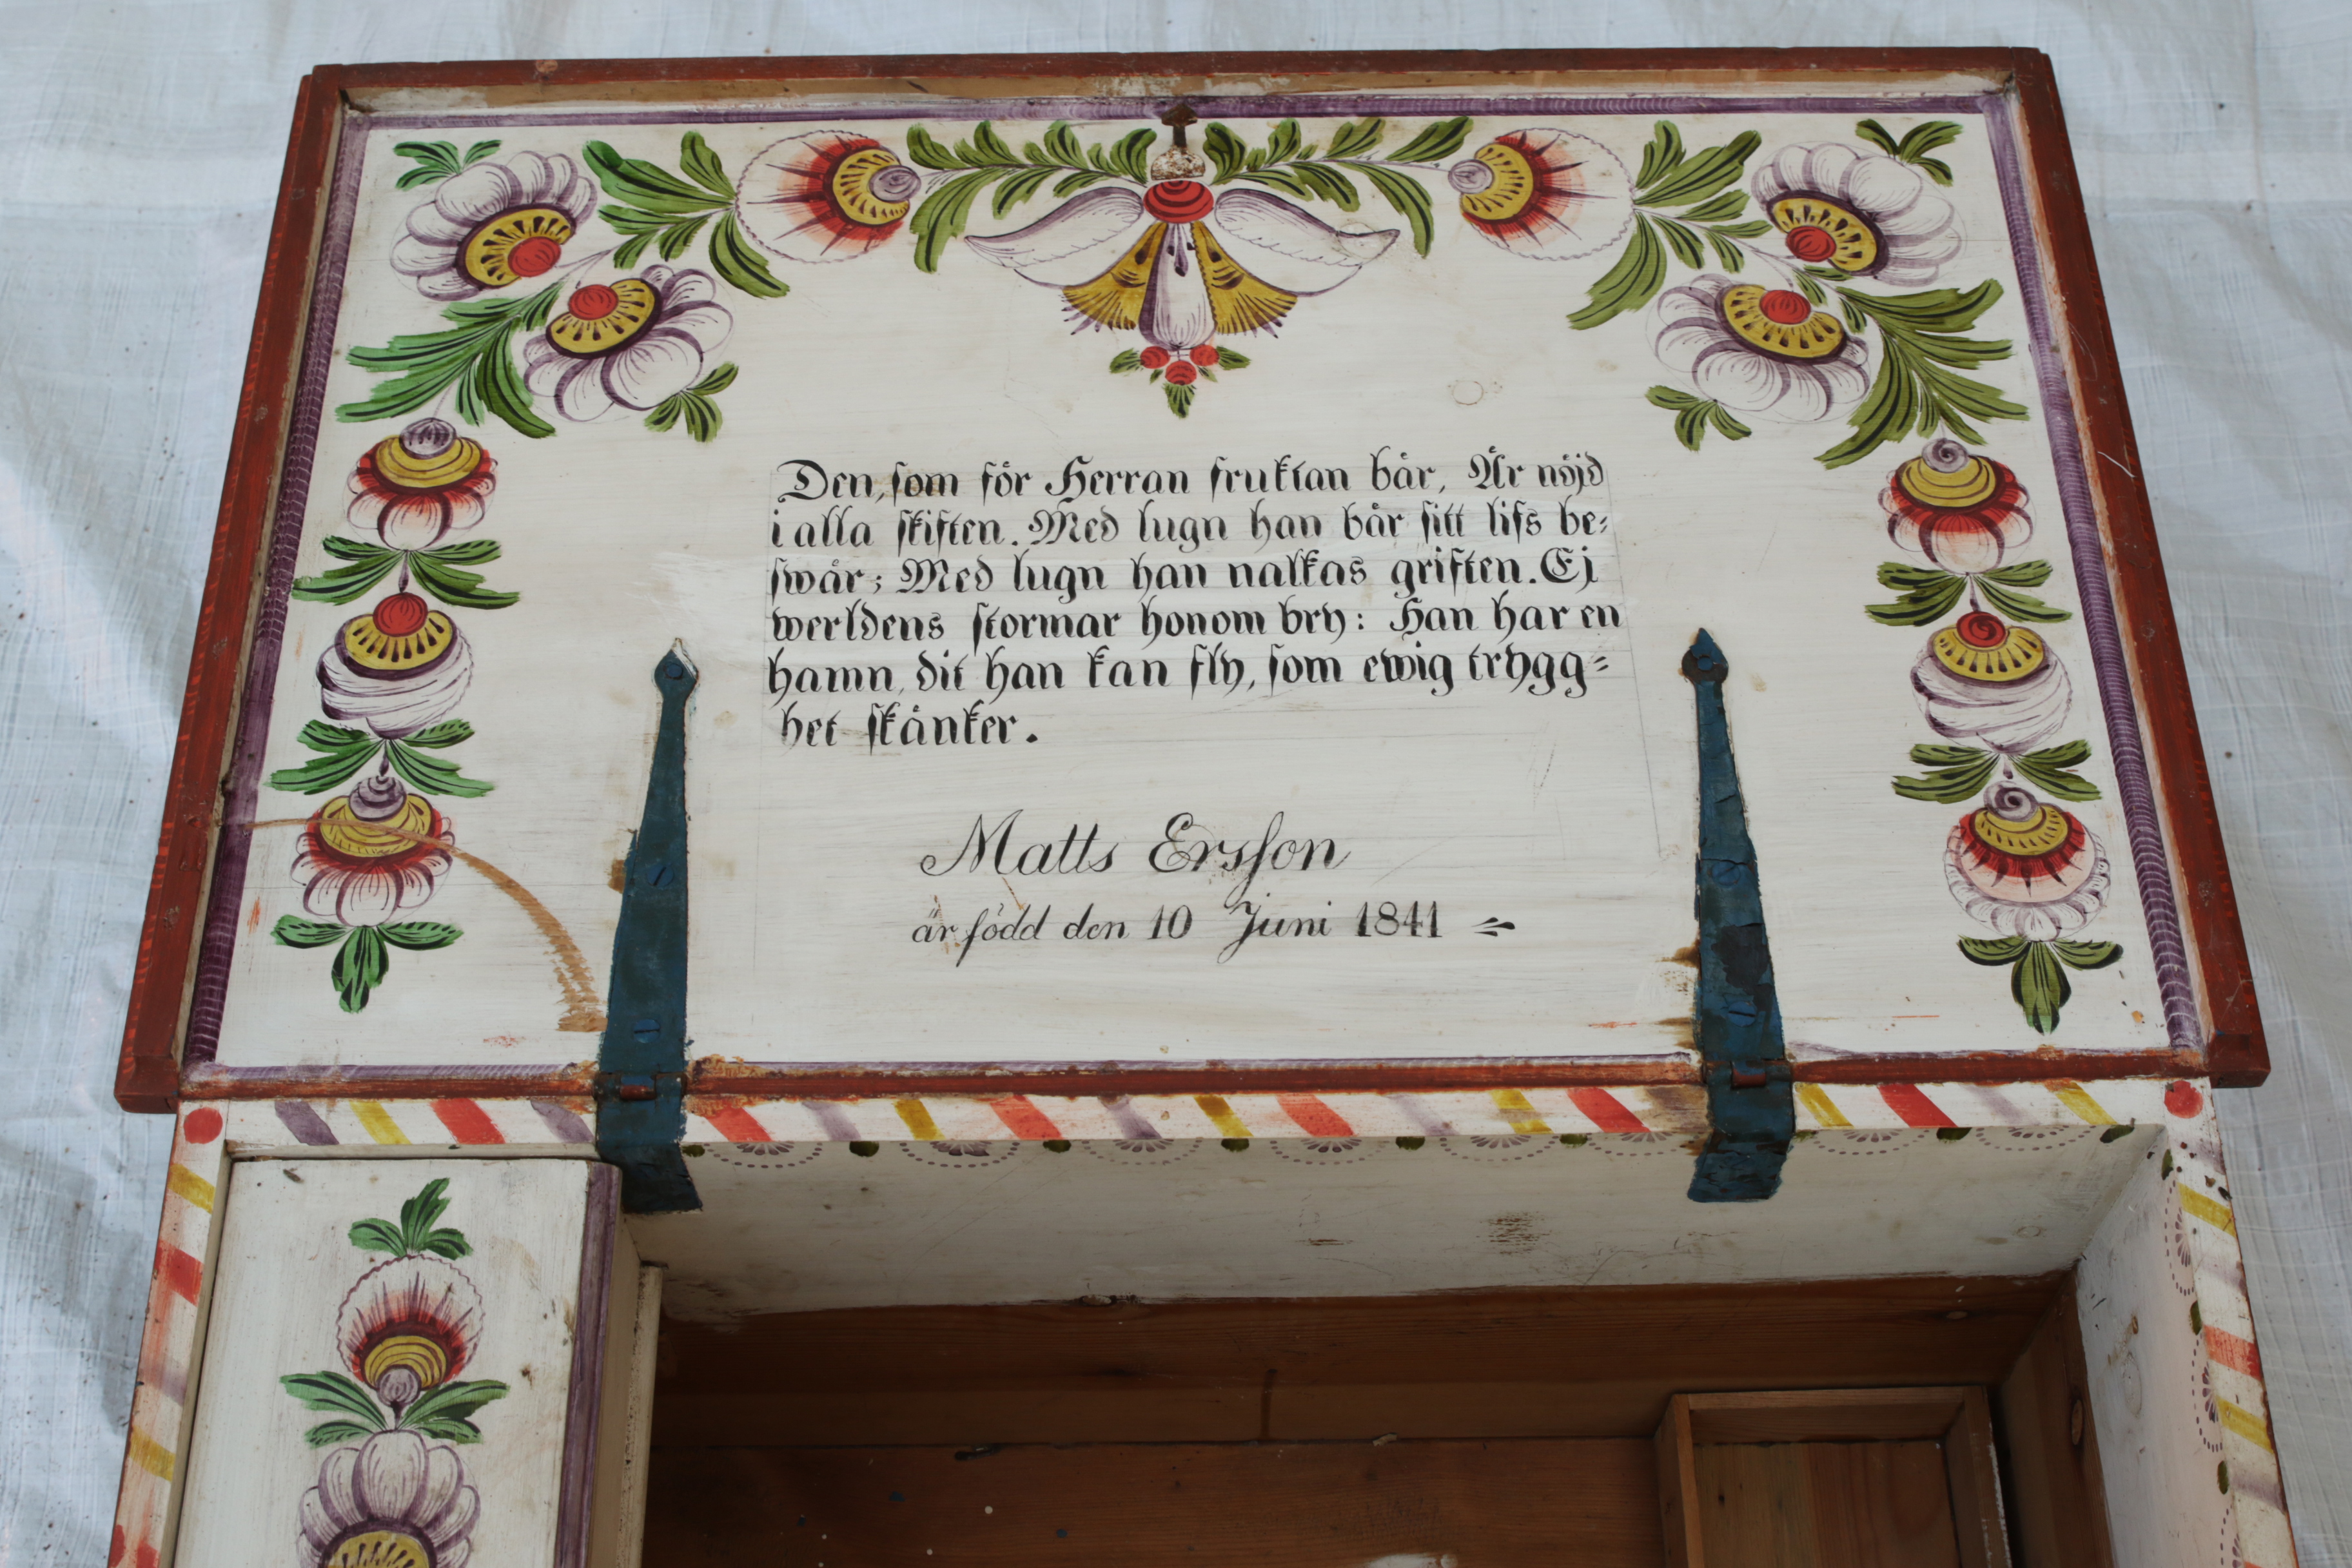 Den, som för Herran fruktan bär, Är nöjd
i alla skiften. Med lugn han bär sitt lifs be=
swär; Med lugn han nalkas griften. Ej
werldens stormar honom bry: Han har en
hamn, dit han kan fly, som ewig trygg=
het skänker.
Matts Ersson
är född den 10 Juni 1841